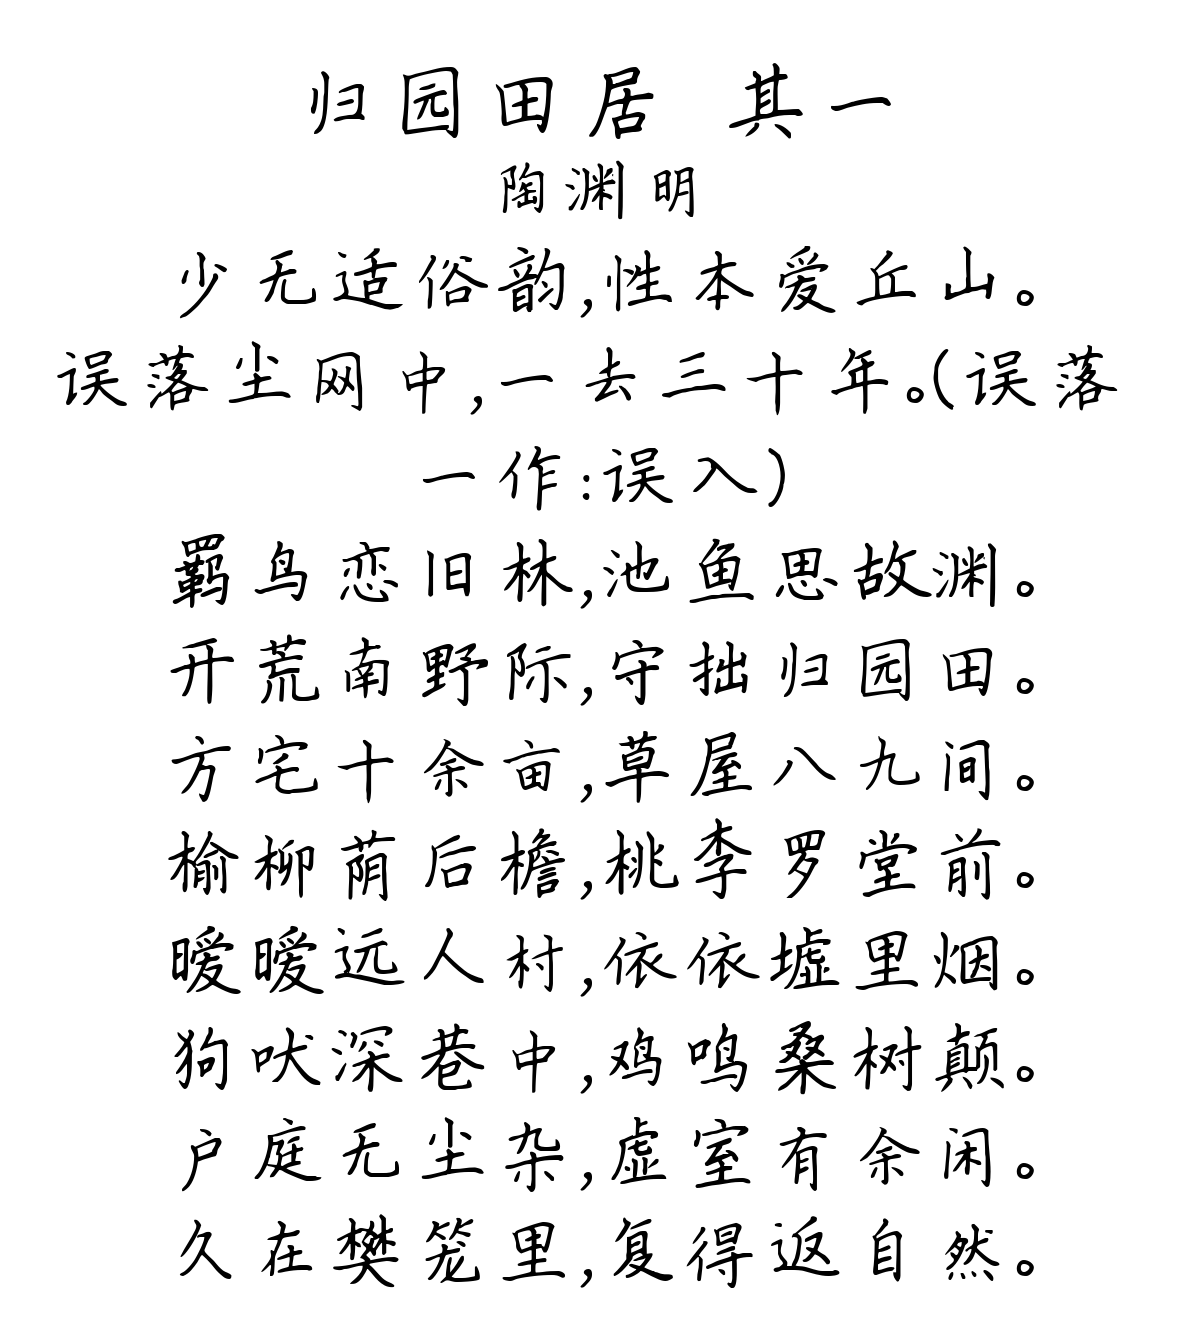 归园田居 其一
陶渊明
少无适俗韵,性本爱丘山。
误落尘网中,一去三十年。(误落
一作:误入)
羁鸟恋旧林,池鱼思故渊。
开荒南野际,守拙归园田。
方宅十余亩,草屋八九间。
榆柳荫后檐,桃李罗堂前。
暧暧远人村,依依墟里烟。
狗吠深巷中,鸡鸣桑树颠。
户庭无尘杂,虚室有余闲。
久在樊笼里,复得返自然。